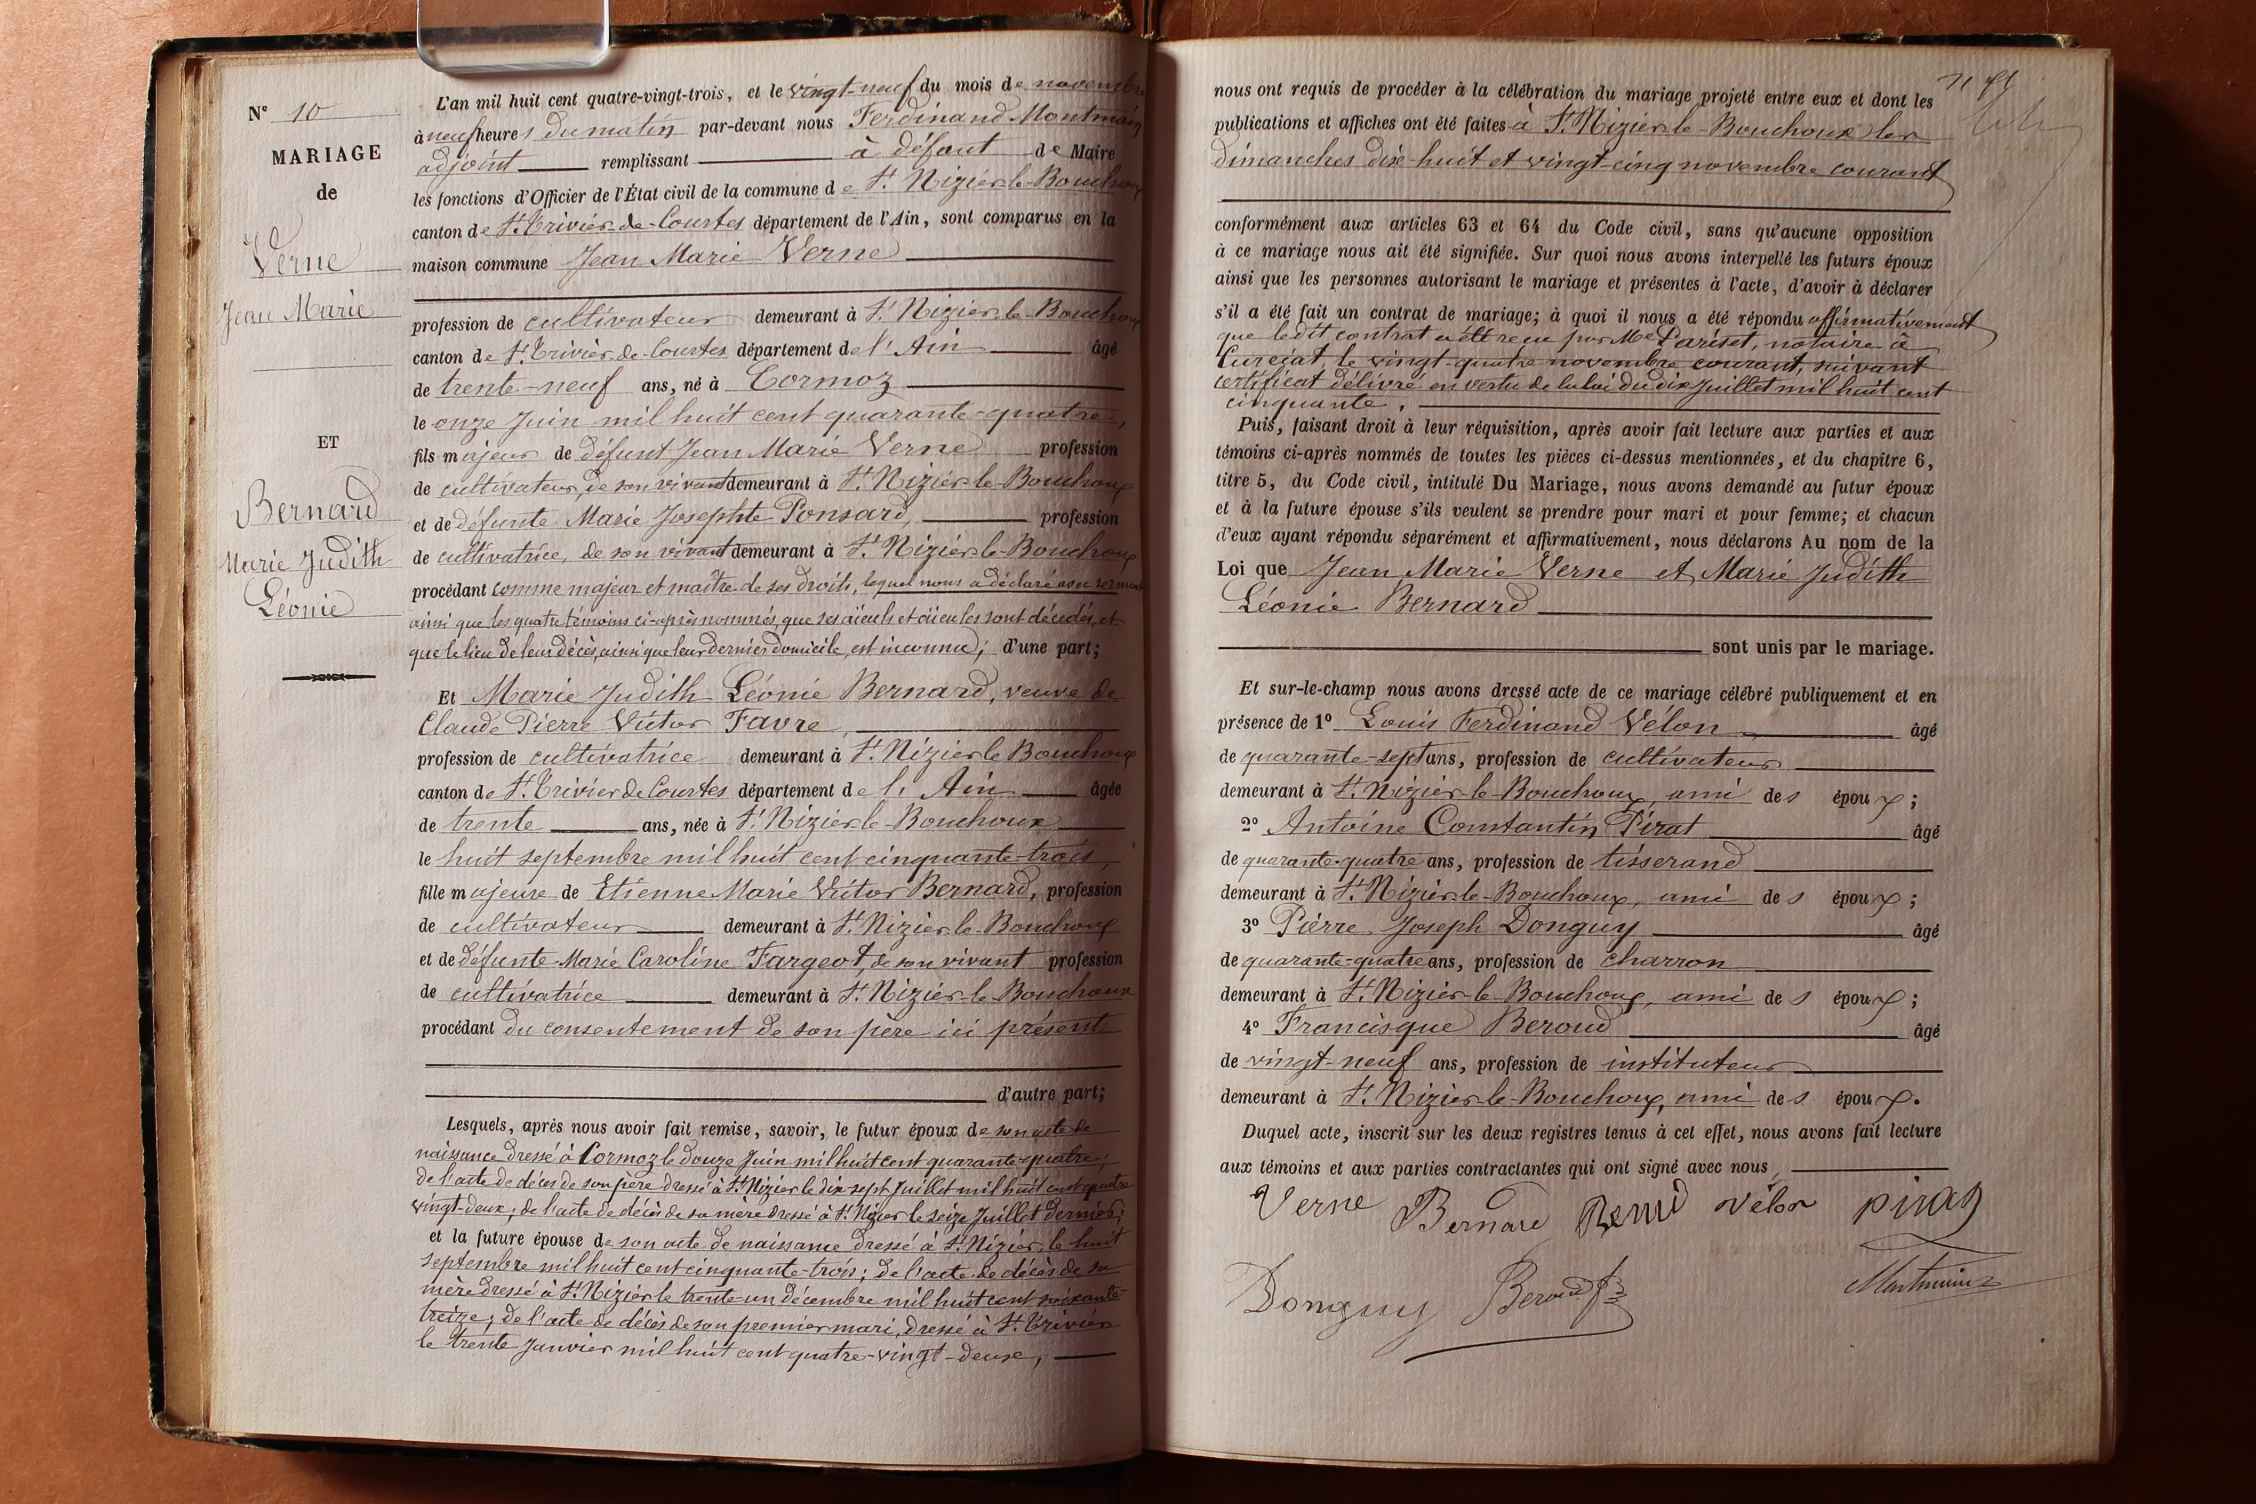 N° 10
MARIAGE
de
Verne
Jean Marie
ET
Bernard
Marie Judith
Léonie
L'an mil huit cent quatre-vingt-trois, et le vingt-neuf du mois de novembre
à neuf heures du matin par-devant nous Ferdinand Montmain
adjoint remplissant à défaut de Maire
les fonctions d'Officier de l'État civil de la commune de St. Nizier-le-Bouchoux
canton de St. Trivier-de-Courtes département de l'Ain, sont comparus en la
maison commune Jean Marie Verne
profession de cultivateur demeurant à St. Nizier-le-Bouchoux
canton de St. Trivier-de-Courtes département de l'Ain âgé
de trente-neuf ans, né à Cormoz
le onze Juin mil huit cent quarante-quatre,
fils majeur de défunt Jean Marie Verne profession
de cultivateur, de son vivant demeurant à St. Nizier-le-Bouchoux
et de défunte Marie Josephte Ponsard, profession
de cultivatrice, de son vivant demeurant à St. Nizier-le-Bouchoux
procédant comme majeur et maître de ses droits, lequel nous a déclaré avec serment
ainsi que les quatre témoins ci-après nommés, que ses aïeuls et aïeules sont décédés, et
que le lieu de leur décès, ainsi que leur dernier domicile, est inconnu; d'une part;
Et Marie Judith Léonie Bernard, veuve de
Claude Pierre Victor Favre,
profession de cultivatrice demeurant à St. Nizier-le-Bouchoux
canton de St. Trivier de Courtes département de l'Ain âgée
de trente ans, née à St. Nizier-le-Bouchoux
le huit septembre mil huit cent cinquante-trois,
fille majeure de Etienne Marie Victor Bernard, profession
de cultivateur demeurant à St. Nizier-le-Bouchoux
et de défunte Marie Caroline Fargeot, de son vivant profession
de cultivatrice demeurant à St. Nizier-le-Bouchoux
procédant du consentement de son père ici présent
d'autre part;
Lesquels, après nous avoir fait remise, savoir, le futur époux de son acte de
naissance dressé à Cormoz le douze Juin mil huit cent quarante-quatre;
de l'acte de décès de son père dressé à St. Nizier le dix sept Juillet mil huit cent quatre
vingt-deux; de l'acte de décès de sa mère dressé à St. Nizier le seize Juillet dernier;
et la future épouse de son acte de naissance dressé à St. Nizier le huit
septembre mil huit cent cinquante-trois; de l'acte de décès de sa
mère dressé à St. Nizier le trente-un décembre mil huit cent soixante-
treize; de l'acte de décès de son premier mari, dressé à St. Trivier
le trente Janvier mil huit cent quatre-vingt-deux;
nous ont requis de procéder à la célébration du mariage projeté entre eux et dont les
publications et affiches ont été faites à St. Nizier-le-Bouchoux les
dimanches dix-huit et vingt-cinq novembre courant
conformément aux articles 63 et 64 du Code civil, sans qu'aucune opposition
à ce mariage nous ait été signifiée. Sur quoi nous avons interpellé les futurs époux
ainsi que les personnes autorisant le mariage et présentes à l'acte, d'avoir à déclarer
s'il a été fait un contrat de mariage; à quoi il nous a été répondu affirmativement
que ledit contrat a été recu par Me Pariset, notaire à
Curciat le vingt-quatre novembre courant, suivant
certificat délivré en vertu de la loi du dix Juillet mil huit cent
cinquante.
Puis, faisant droit à leur réquisition, après avoir fait lecture aux parties et aux
témoins ci-après nommés de toutes les pièces ci-dessus mentionnées, et du chapitre 6,
titre 5, du Code civil, intitulé Du Mariage, nous avons demandé au futur époux
et à la future épouse s'ils veulent se prendre pour mari et pour femme; et chacun
d'eux ayant répondu séparément et affirmativement, nous déclarons Au nom de la
Loi que Jean Marie Verne et Marie Judith
Léonie Bernard
sont unis par le mariage.
Et sur-le-champ nous avons dressé acte de ce mariage célébré publiquement et en
présence de 1° Louis Ferdinand Vélon âgé
de quarante-sept ans, profession de cultivateur
demeurant à St. Nizier-le-Bouchoux, ami des époux;
2° Antoine Constantin Pirat âgé
de quarante-quatre ans, profession de tisserand
demeurant à St. Nizier-le-Bouchoux, ami des époux;
3° Pierre Joseph Donguy âgé
de quarante-quatre ans, profession de charron
demeurant à St. Nizier-le-Bouchoux, ami des époux;
4° Francisque Beroud âgé
de vingt-neuf ans, profession de instituteur
demeurant à St. Nizier-le-Bouchoux, ami des époux.
Duquel acte, inscrit sur les deux registres tenus à cet effet, nous avons fait lecture
aux témoins et aux parties contractantes qui ont signé avec nous,
Verne Bernard Vélon Pirat
Donguy Beroud Montmain